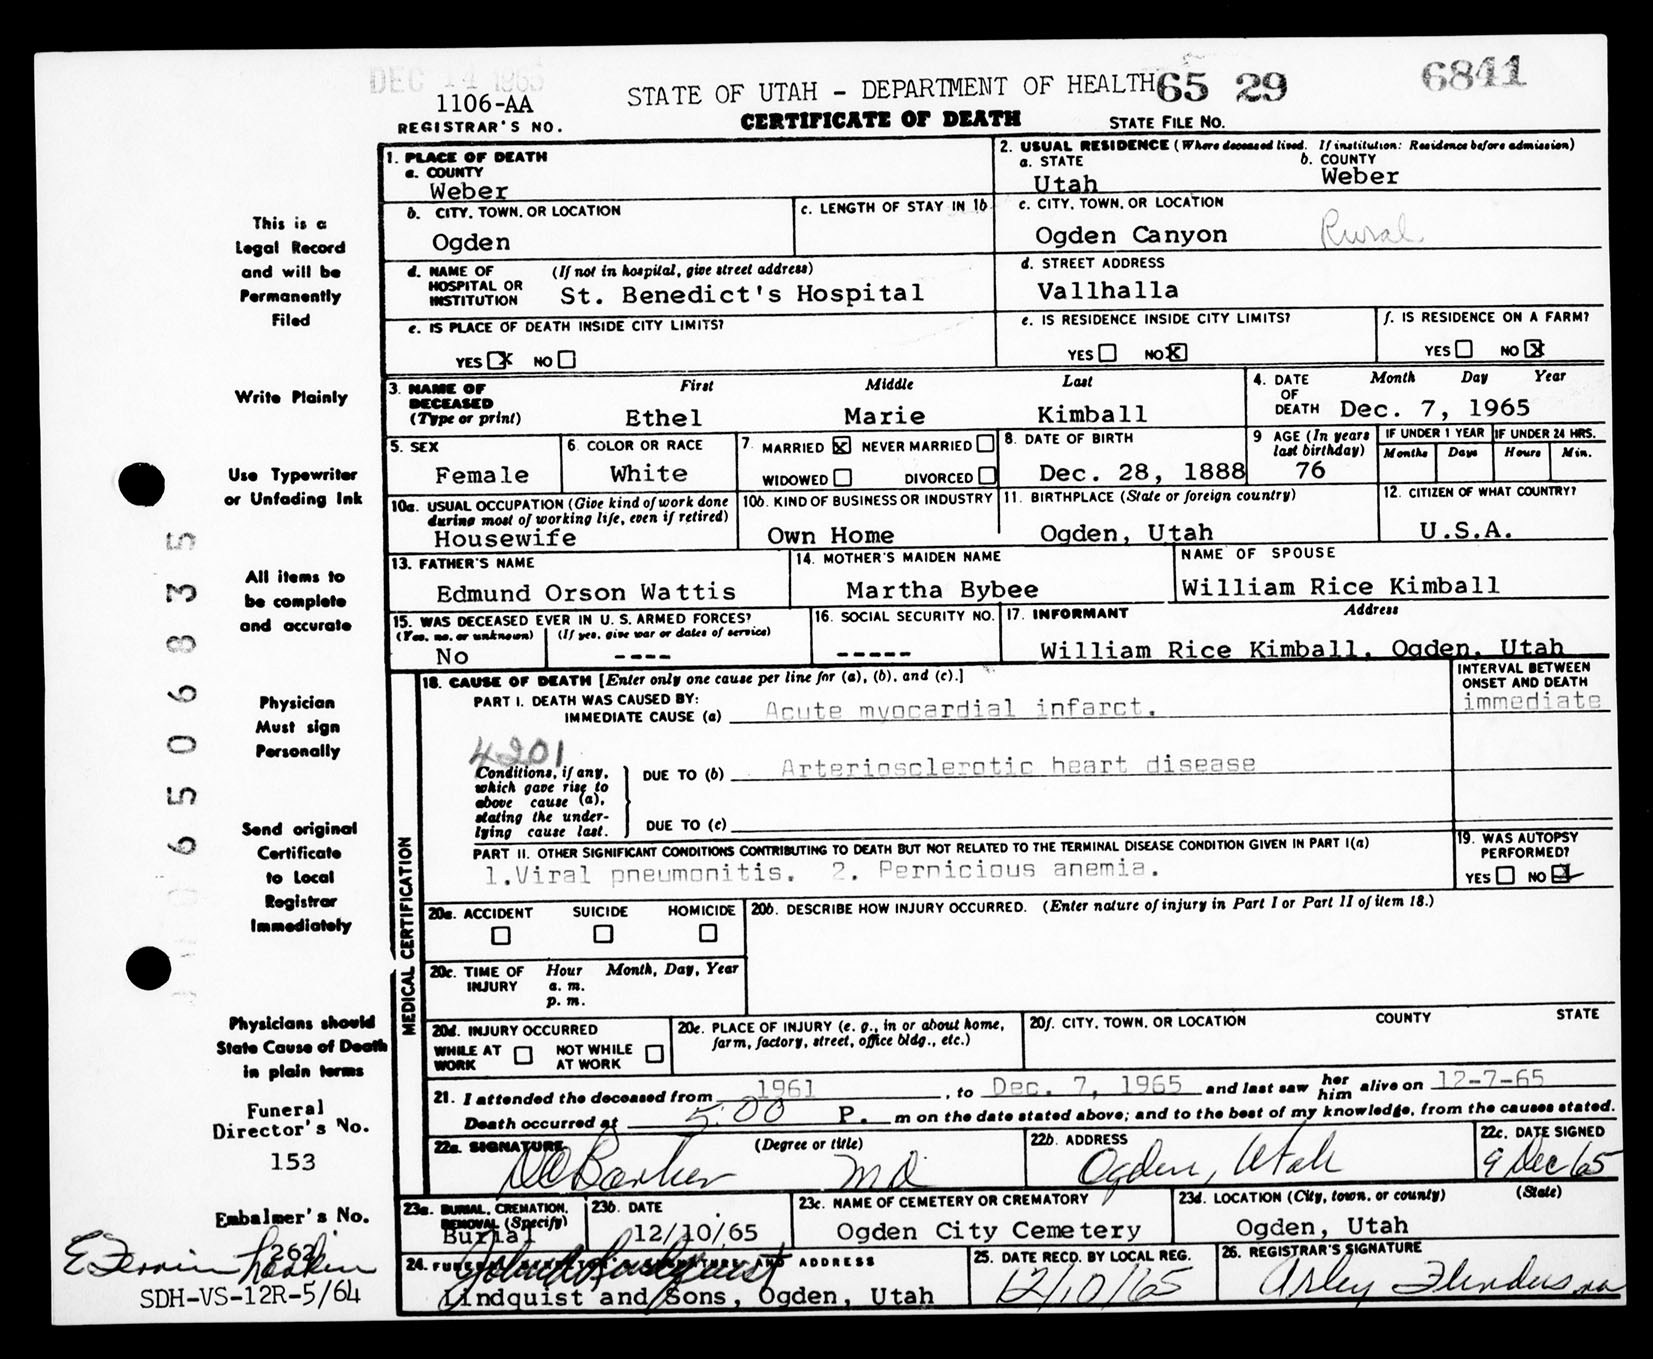 DEC 14 1965
1106-AA
REGISTRAR'S NO.
STATE OF UTAH - DEPARTMENT OF HEALTH 65 29 6841
CERTIFICATE OF DEATH STATE FILE NO.
This is a
Legal Record
and will be
Permanently
Filed
Write Plainly
Use Typewriter
or Unfading Ink
All items to
be complete
and accurate
Physician
Must sign
Personally
Send original
Certificate
to Local
Registrar
Immediately
Physicians should
State Cause of Death
in plain terms
Funeral
Director's No.
153
Embalmer's No.
262
SDH-VS-12R-5/64
650683 5
1. PLACE OF DEATH
a. COUNTY
Weber
2. USUAL RESIDENCE (Where deceased lived. If institution: Residence before admission)
a. STATE b. COUNTY
Utah Weber
b. CITY, TOWN, OR LOCATION c. LENGTH OF STAY IN 1b
Ogden
c. CITY, TOWN, OR LOCATION
Ogden Canyon Rural
d. NAME OF HOSPITAL OR INSTITUTION (If not in hospital, give street address)
St. Benedict's Hospital
d. STREET ADDRESS
Vallhalla
e. IS PLACE OF DEATH INSIDE CITY LIMITS?
YES X NO
e. IS RESIDENCE INSIDE CITY LIMITS?
YES NO X
f. IS RESIDENCE ON A FARM?
YES NO X
3. NAME OF DECEASED (Type or print) First Middle Last
Ethel Marie Kimball
4. DATE OF DEATH Month Day Year
Dec. 7, 1965
5. SEX
Female
6. COLOR OR RACE
White
7. MARRIED X NEVER MARRIED
WIDOWED DIVORCED
8. DATE OF BIRTH
Dec. 28, 1888
9 AGE (In years last birthday)
76
IF UNDER 1 YEAR IF UNDER 24 HRS.
Months Days Hours Min.
10a. USUAL OCCUPATION (Give kind of work done during most of working life, even if retired)
Housewife
10b. KIND OF BUSINESS OR INDUSTRY
Own Home
11. BIRTHPLACE (State or foreign country)
Ogden, Utah
12. CITIZEN OF WHAT COUNTRY?
U.S.A.
13. FATHER'S NAME
Edmund Orson Wattis
14. MOTHER'S MAIDEN NAME
Martha Bybee
NAME OF SPOUSE
William Rice Kimball
15. WAS DECEASED EVER IN U. S. ARMED FORCES?
(Yes, no, or unknown) (If yes, give war or dates of service)
No ----
16. SOCIAL SECURITY NO.
-----
17. INFORMANT Address
William Rice Kimball, Ogden, Utah
MEDICAL CERTIFICATION
18. CAUSE OF DEATH [Enter only one cause per line for (a), (b), and (c).]
INTERVAL BETWEEN ONSET AND DEATH
PART I. DEATH WAS CAUSED BY:
IMMEDIATE CAUSE (a) Acute myocardial infarct. immediate
4201
Conditions, if any, which gave rise to above cause (a), stating the underlying cause last.
DUE TO (b) Arteriosclerotic heart disease
DUE TO (c)
PART II. OTHER SIGNIFICANT CONDITIONS CONTRIBUTING TO DEATH BUT NOT RELATED TO THE TERMINAL DISEASE CONDITION GIVEN IN PART I(a)
1.Viral pneumonitis. 2. Pernicious anemia.
19. WAS AUTOPSY PERFORMED?
YES NO X
20a. ACCIDENT SUICIDE HOMICIDE
20b. DESCRIBE HOW INJURY OCCURRED. (Enter nature of injury in Part I or Part II of item 18.)
20c. TIME OF INJURY Hour Month, Day, Year
a. m.
p. m.
20d. INJURY OCCURRED
WHILE AT WORK NOT WHILE AT WORK
20e. PLACE OF INJURY (e. g., in or about home, farm, factory, street, office bldg., etc.)
20f. CITY, TOWN, OR LOCATION COUNTY STATE
21. I attended the deceased from 1961, to Dec. 7, 1965 and last saw her him alive on 12-7-65
Death occurred at 5:00 P. m on the date stated above; and to the best of my knowledge, from the causes stated.
22a. SIGNATURE (Degree or title)
Barker MD
22b. ADDRESS
Ogden, Utah
22c. DATE SIGNED
9 Dec 65
23a. BURIAL, CREMATION, REMOVAL (Specify)
Burial
23b. DATE
12/10/65
23c. NAME OF CEMETERY OR CREMATORY
Ogden City Cemetery
23d. LOCATION (City, town, or county) (State)
Ogden, Utah
24. FUNERAL AND ADDRESS
Lindquist and Sons, Ogden, Utah
25. DATE RECD. BY LOCAL REG.
12/10/65
26. REGISTRAR'S SIGNATURE
Arley Flinders